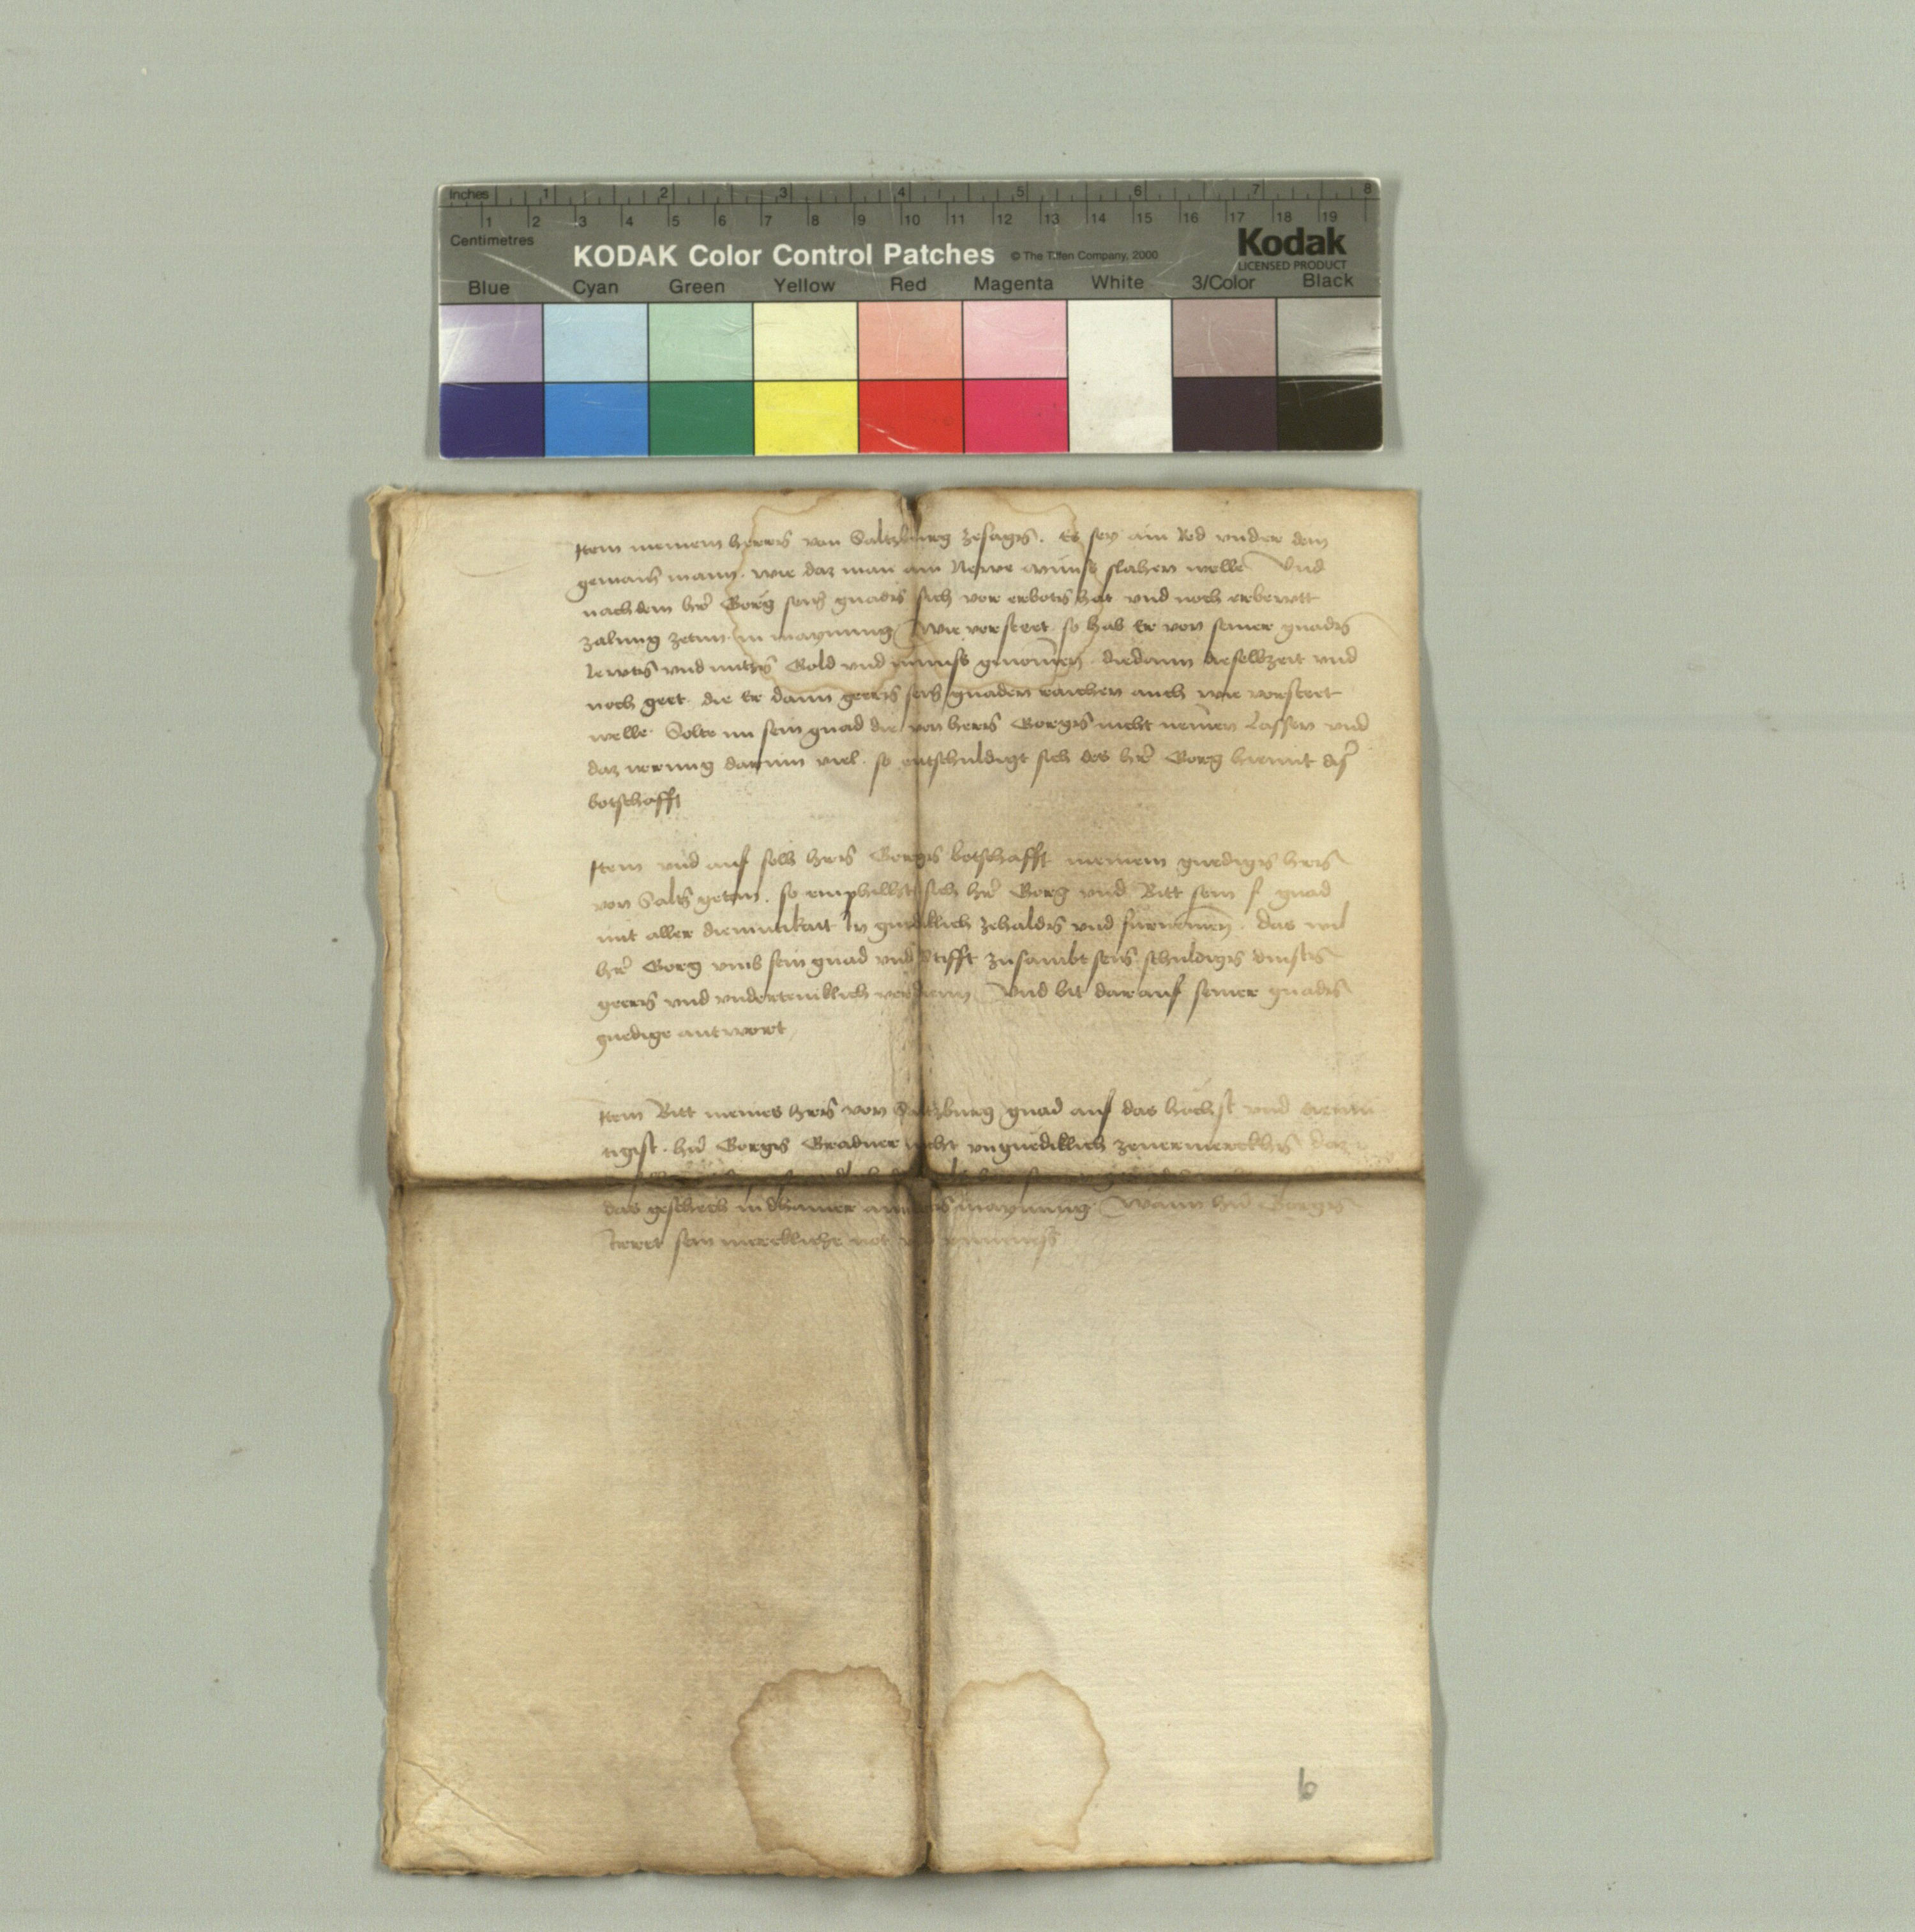 Inches 1 2 3 4 5 6 7 8
1 2 3 4 5 6 7 8 9 10 11 12 13 14 15 16 17 18 19
Centimetres
KODAK Color Control Patches © The Tiffen Company, 2000 Kodak
LICENSED PRODUCT
Blue Cyan Green Yellow Red Magenta White 3/Color Black
Item meinem herrn von Saltzburg zesagn. Es sey ain Red vnder dem
gemain mann. wie daz man ain Newe munss slahen welle Und
nachdem her Gorg seinen gnadn sich vor erbotn hat vnd noch erbewtt
zalung zetun in maynung Wie vorsteet so hab Er von seiner gnadn
lewtn vnd nutzn Gold vnd munss genomen diedann dieselbzeit vnd
noch geet die Er dann gern sein gnaden raichen auch wie vorsteet
welle. Solte nu sein gnad die von hern Gorgn nicht nemen Lassen vnd
daz verrung darinn viel. so entschuldigt sich des her Gorg hiemit diser
botschafft
Item vnd auf solh hern Gorgn botschafft meinem gnedign hern
von Saltz getan. so emphilhst sich her Gorg vnd Bitt sein f gnad
mit aller diemutikait In gnediklich zehaldn vnd furnemen. das wil
her Gorg vmb sein gnad vnd Stifft zusambt seins schuldign dinstn
gern vnd vnderteniklich verdienn Und bit darauf seiner gnadn
gnedige antwort
Item Bitt meines hern von Saltzburg gnad auf das hochst vnd
tigist. her Gorgn Gradner nicht vngnediklich zeuermerckhn daz
das geschech in dhainer anndern maynung Wann her Gorgn
sein merckliche not
b